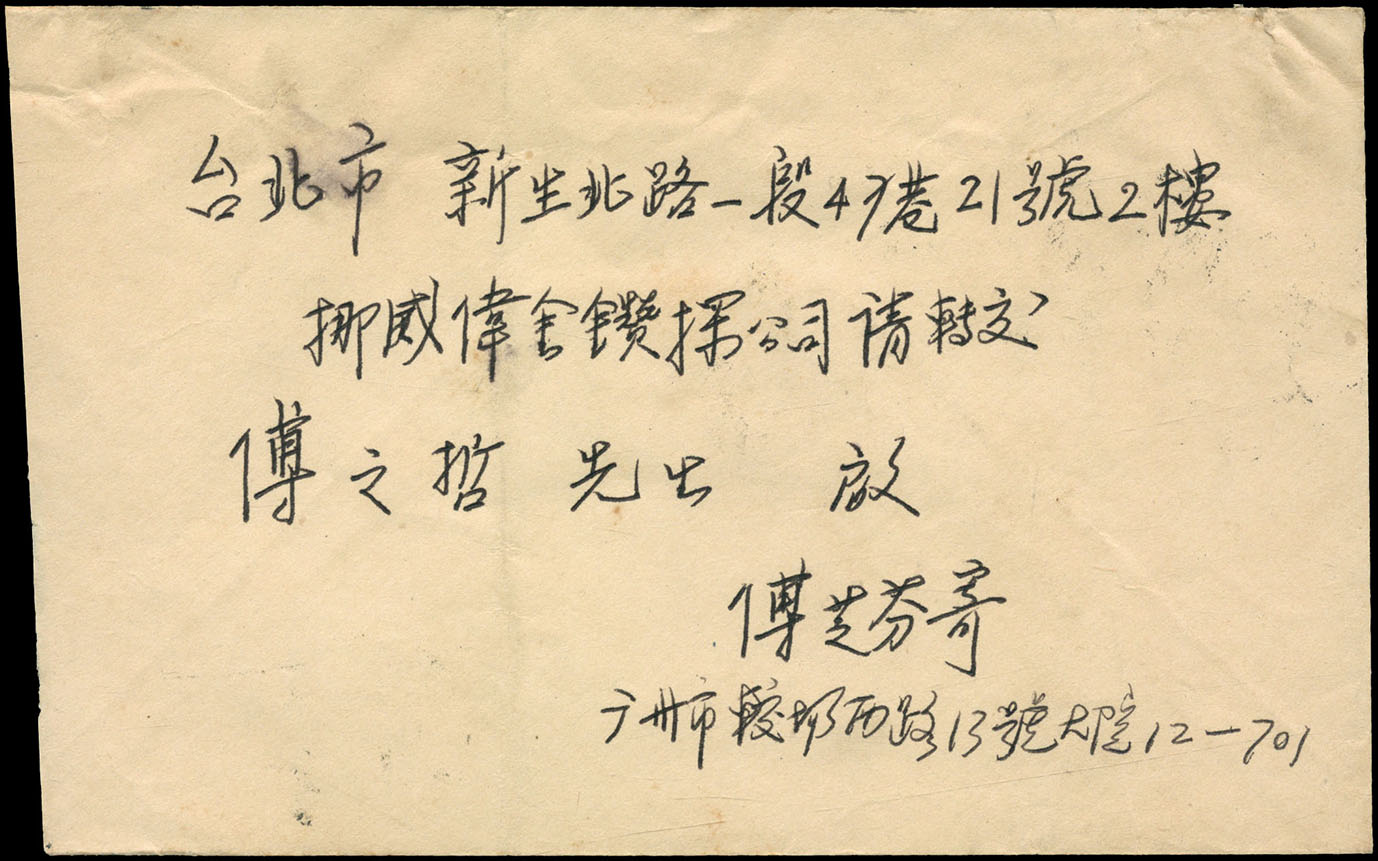 台北市 新生北路一段47巷21號2樓
挪威偉金鑽探公司請轉交
傅之哲 先生 啟
傅芝芬寄
广州市較場西路13號大院12—701